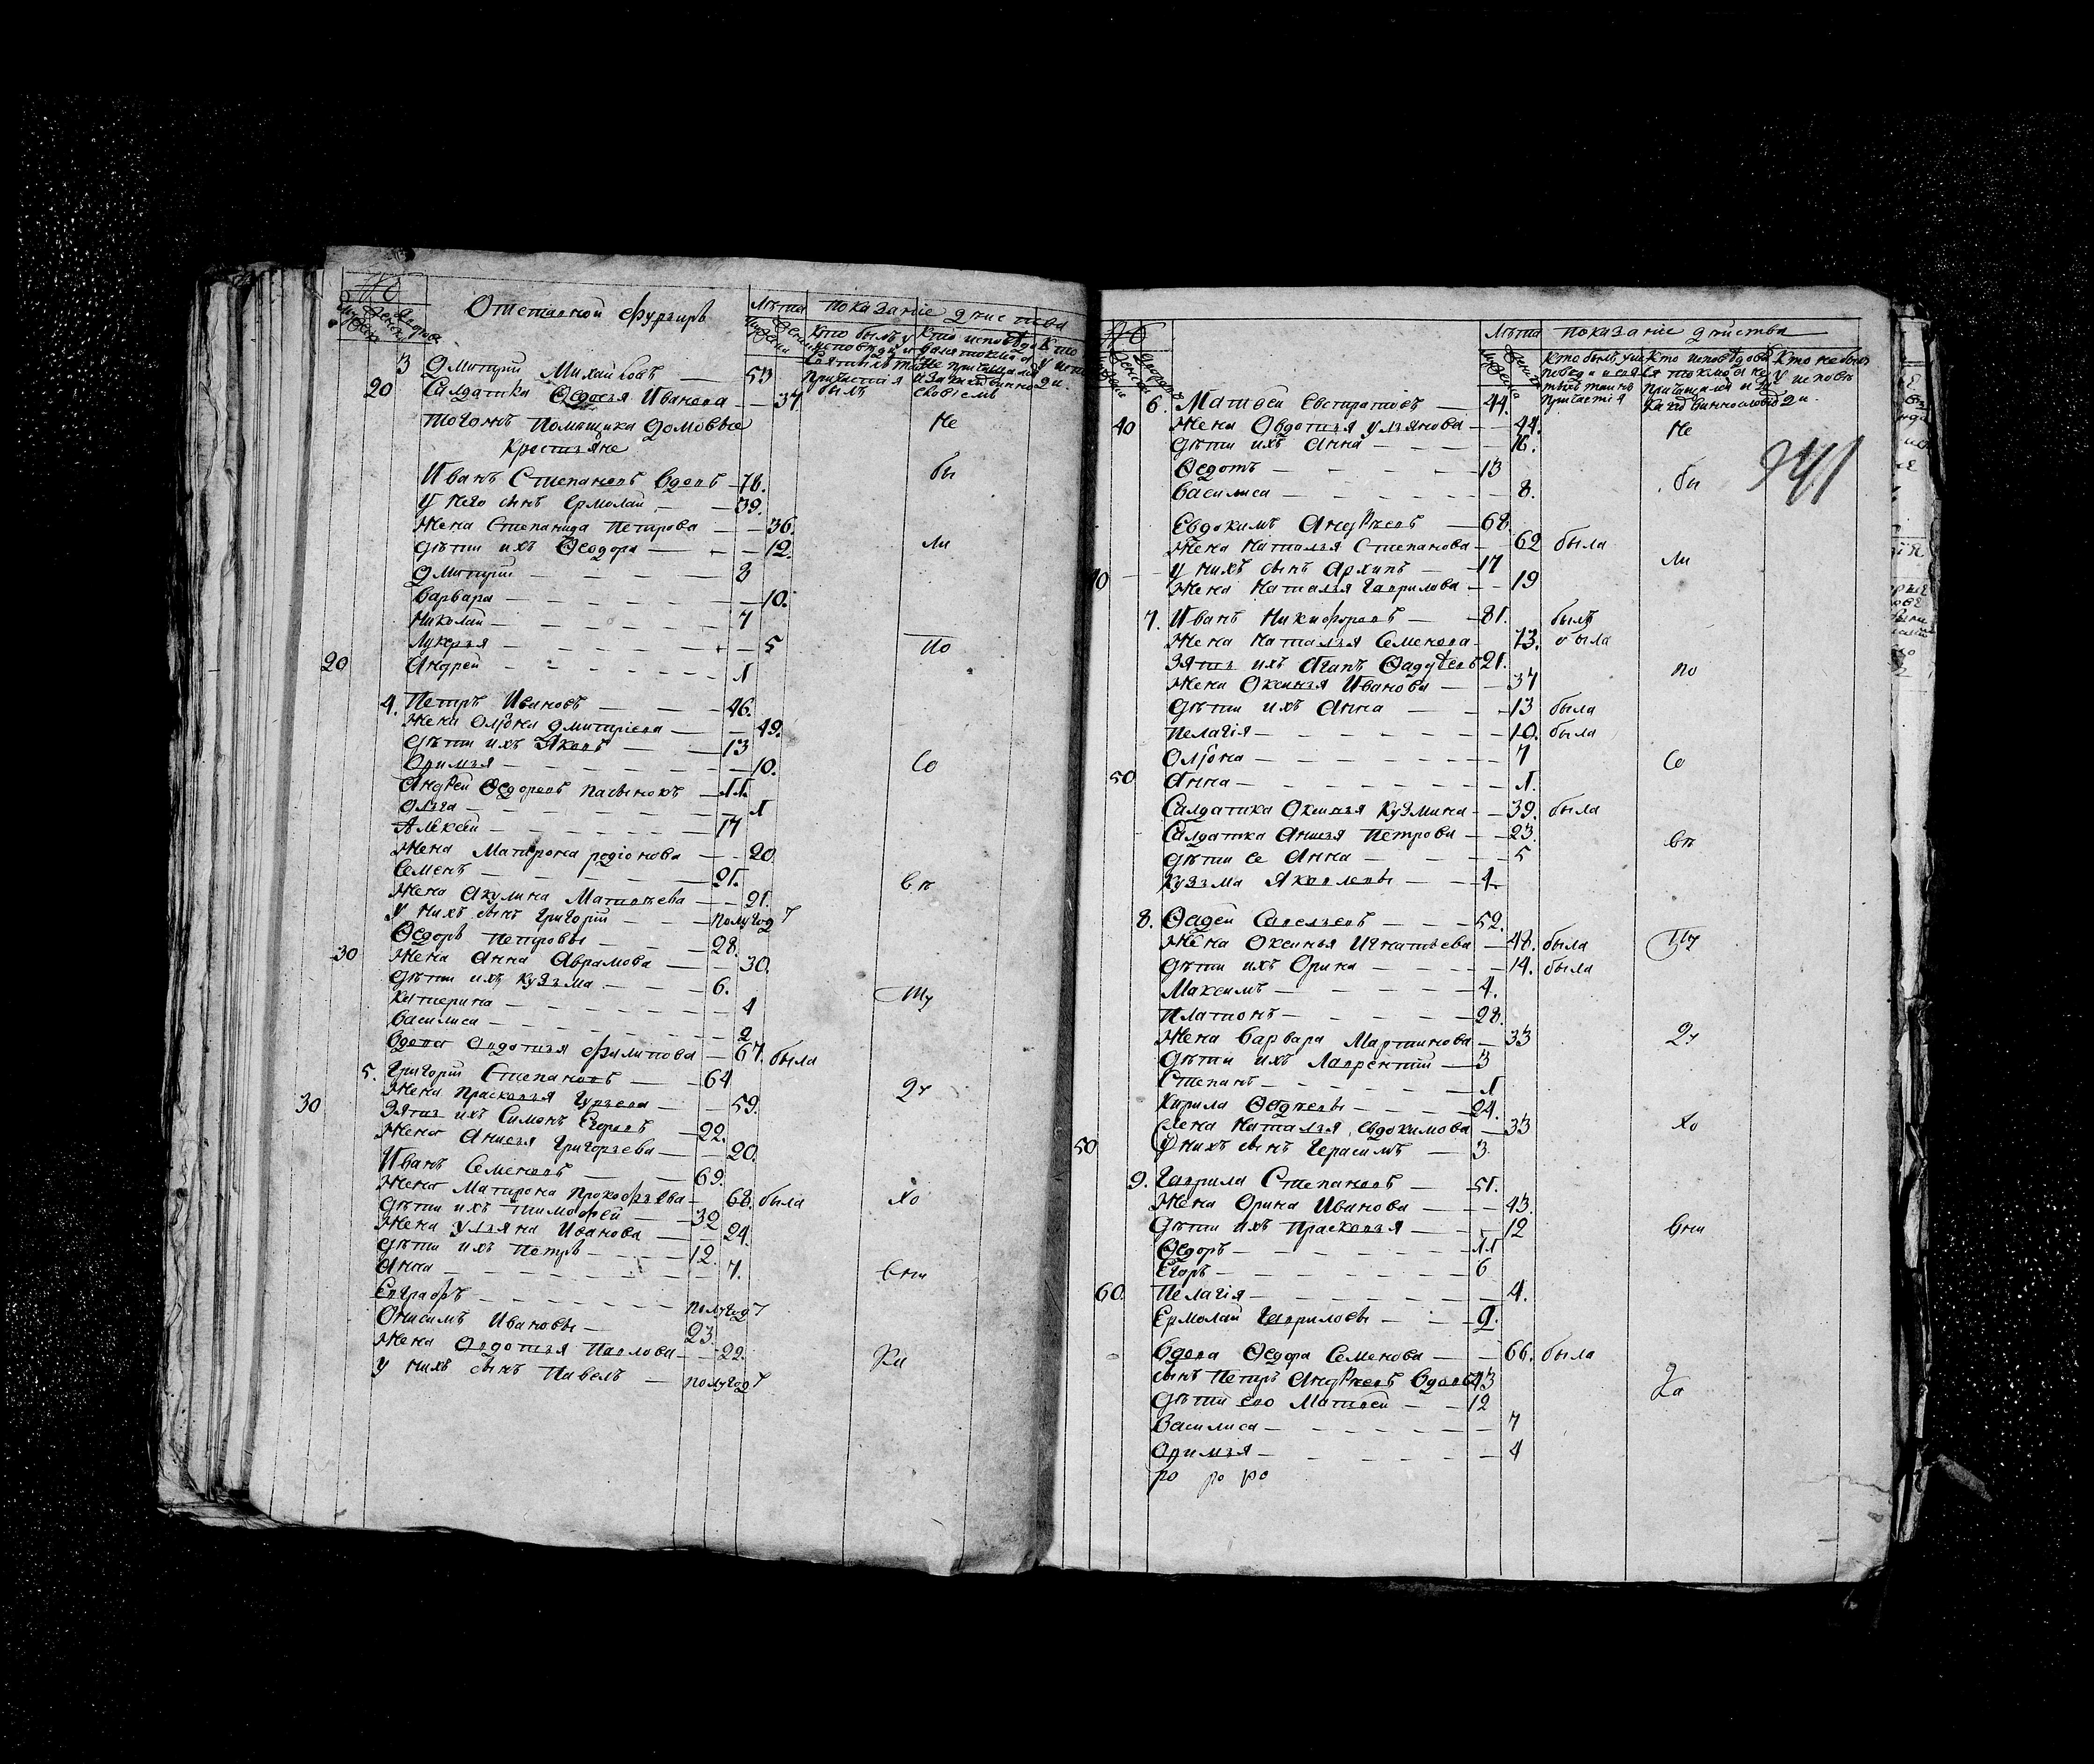 №
Отставной фурзиръ
Лѣта показаніе дѣиства
3 Дмитрий Михайловъ 53 былъ
20 Салдатка Ѳедосья Иванова 37
тогожъ помѣщика домовые Не
Крестьяне
Иванъ Степановъ вдовъ 76. бы
У него сынъ Ермолай 39.
Жена Степанида Петрова 36.
дѣти ихъ Ѳеодора 12. ли
Дмитрий 8
Варвара 10.
Николай 7
Лукерья 5 по
20 Андрей 1
4. Петръ Ивановъ 46.
Жена Олјона Дмитріева 49.
дѣти ихъ Яковъ 13
Аримья 10. Со
Андрей Ѳедоровъ пасынокъ 11.
Олга 1
Алексей 17
Жена Матрона родіонова 20
Семенъ 21.
Жена Акулина Матвѣева 21. вѣ
У нихъ сынъ Григорий полугоду
Ѳедоръ Петровъ 28.
30 Жена Анна Аврамова 30.
дѣти ихъ кузьма 6.
Катерина 4 ту
Василиса 2
Вдова Авдотья филипова 67. была
5. Григорий Степановъ 64
Жена Прасковья Гурьева 59. ду
30 Зять ихъ Симонъ Егоровъ 22.
Жена Анисья Григорьева 20.
Иванъ Семеновъ 69.
Жена Матрона Прокофьева 68. была хо
дѣти ихъ тимофей 32
Жена Ульяна Иванова 24.
дѣти ихъ Петръ 12.
Анна 7. вни
Евграфъ полугоду
Онисимъ Ивановъ 23.
Жена Авдотья Павлова 22.
У нихъ сынъ Павелъ полугоду
№
Лѣта показаніе дѣиства
6. Матвей Евстратовъ 44.
40 Жена Овдотья Ульянова 44. Не
дѣти ихъ Анна 16.
Ѳедотъ 13
Василиса 8. бы
941
Евдокимъ Андрѣевъ 68
Жена Наталья Степанова 62 была
У нихъ сынъ Архипъ 17 ли
40 Жена Наталья Гаврилова 19
7. Иванъ Никифоровъ 81. былъ
Жена Наталья Семенова 73. была
Зять ихъ Агапъ Ѳадѣевъ 21.
Жена Оксинья Иванова 37 по
дѣти ихъ Анна 13 была
Пелагія 10. была
Олјона 7 Со
50 Анна 1.
Салдатка Оксинья Кузмина 39. была
Салдатка Анисья Петрова 23.
дѣти ее Анна 5 вѣ
Кузьма Яковлевъ 4.
8. Ѳадей Савельевъ 52.
Жена Оксинья Игнатьева 48. была ту
дѣти ихъ Орина 14. была
Максимъ 4.
Платонъ 28.
Жена Варвара Мартинова 33 ду
дѣти ихъ Лаврентий 3
Степанъ 1
Кирила Ѳадѣевъ 24.
Жена Наталья Евдокимова 33 хо
50 У нихъ сынъ Герасимъ 3
9. Гаврила Степановъ 51.
Жена Орина Иванова 43.
дѣти ихъ Прасковья 12 вни
Ѳедоръ 11
Егоръ 6
60. Пелагія 4.
Ермолай Гавриловъ 9.
Вдова Ѳедора Семенова 66. была
сынъ Петръ Андрѣевъ вдовъ 43
дѣти ево Матвей 12
Василиса 7
Аримья 4
ро ро ро